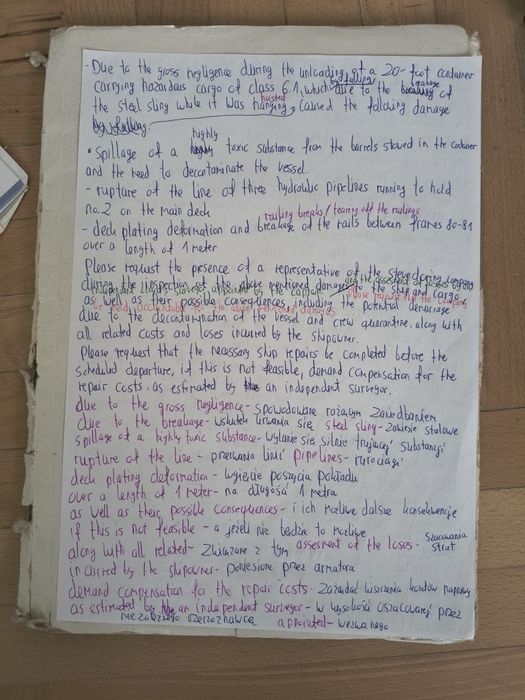 - Due to the gross negligence during the unloading of a 20-foot container
carrying hazardous cargo of class 6.1, which by falling due to the breakage of
the steel sling while it was hoisted, caused the following damage
• Spillage of a highly toxic substance from the barrels stowed in the container
and the need to decontaminate the vessel.
- rupture of the line of three hydraulic pipelines running to hold
no.2 on the main deck
railing breaks / tearing off the railings
- deck plating deformation and breakage of the rails between frames 80-81
over a length of 1 meter
Please request the presence of a representative of the stevedoring company
and the assesment of losses by an
during the inspection of the above mentioned damages to the ship and cargo,
independent surveyor appointed by the captain
please request that the company
as well as their possible consequences, including the potential demurrage
be held accountable for the above mentioned damages
due to the decontamination of the vessel and crew quarantine, along with
all related costs and losses incurred by the shipowner.
Please request that the neassary ship repairs be completed before the
scheduled departure, if this is not feasible, demand compensation for the
repair costs, as estimated by an independent surveyor.
due to the gross negligence - spowodowane rożaym zaniedbaniem
due to the breakage - wskutek urwania się steel sling - zawiesie stalowe
spillage of a highly toxic substance - wylanie się silnie trującej substancji
rupture of the line - przerwania linii pipelines - rurociągi
deck plating deformation - wygięcie poszycia pokładu
over a length of 1 meter - na długości 1 metra
as well as their possible consequences - i ich możliwe dalsze konsekwencje
if this is not feasible - a jeżeli nie będzie to możliwe
along with all related - związane z tym assesment of the loses - szacowania strat
incurred by the shipowner - poniesione przez armatora
demand compensation for the repair costs - zażądać kosztów naprawy
as estimated by an independent surveyor - w wysokości oszacowanej przez
niezależnego rzeczoznawcę appointed - wezwanego